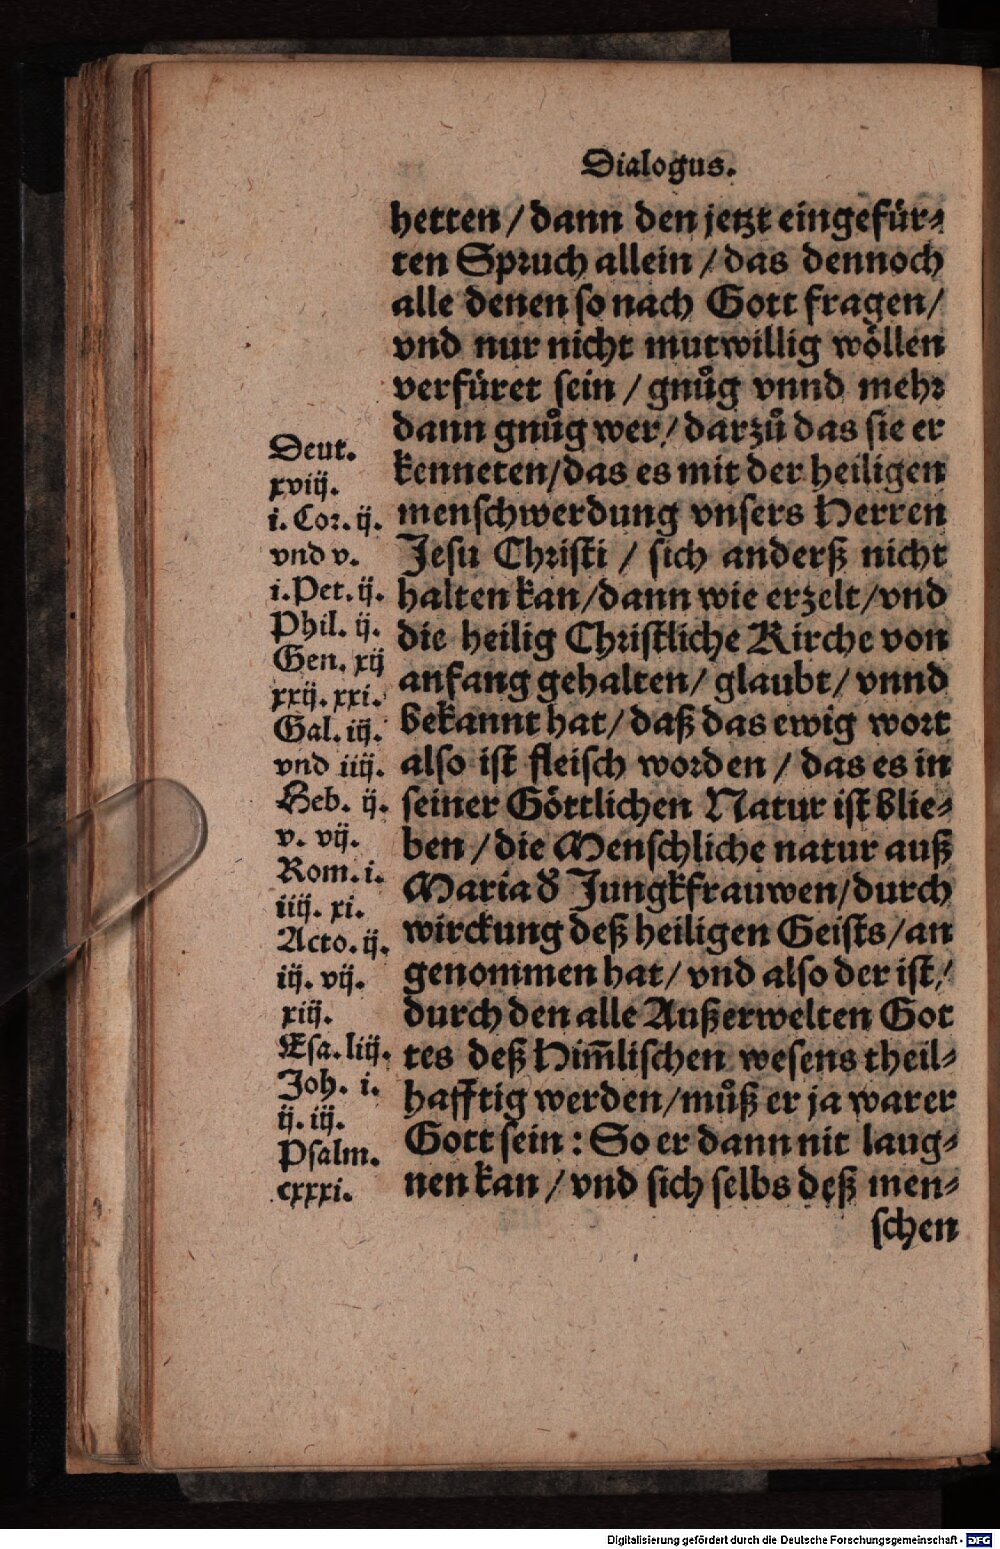 Dialogus.
hetten / dann den jetzt eingefür⸗
ten Spruch allein / das dennoch
alle denen so nach Gott fragen/
vnd nur nicht mutwillig wöllen
verfüret sein / gnůg vnnd mehr
dann gnůg wer / darzů das sie er
kenneten/das es mit der heiligen
menschwerdung vnsers Herren
Jesu Christi / sich anderß nicht
halten kan/dann wie erzelt/vnd
die heilig Christliche Kirche von
anfang gehalten/ glaubt/ vnnd
bekannt hat/ daß das ewig wort
also ist fleisch worden / das es in
seiner Göttlichen Natur ist blie⸗
ben / die Menschliche natur auß
Maria d̕ Jungkfrauwen/durch
wirckung deß heiligen Geists/an
genommen hat/ vnd also der ist/
durch den alle Außerwelten Got
tes deß Him̄lischen wesens theil⸗
hafftig werden/můß er ja warer
Gott sein : So er dann nit laug⸗
nen kan / vnd sich selbs deß men⸗
schen
Deut.
xviij.
i. Cor. ij.
vnd v.
i. Pet. ij.
Phil. ij.
Gen. xij
xxij. xxi.
Gal. iij.
vnd iiij.
Heb. ij.
v. vij.
Rom. i.
iiij. xi.
Acto. ij.
iij. vij.
xiij.
Esa. liij.
Joh. i.
ij. iij.
Psalm.
cxxxi.
Digitalisierung gefördert durch die Deutsche Forschungsgemeinschaft - DFG